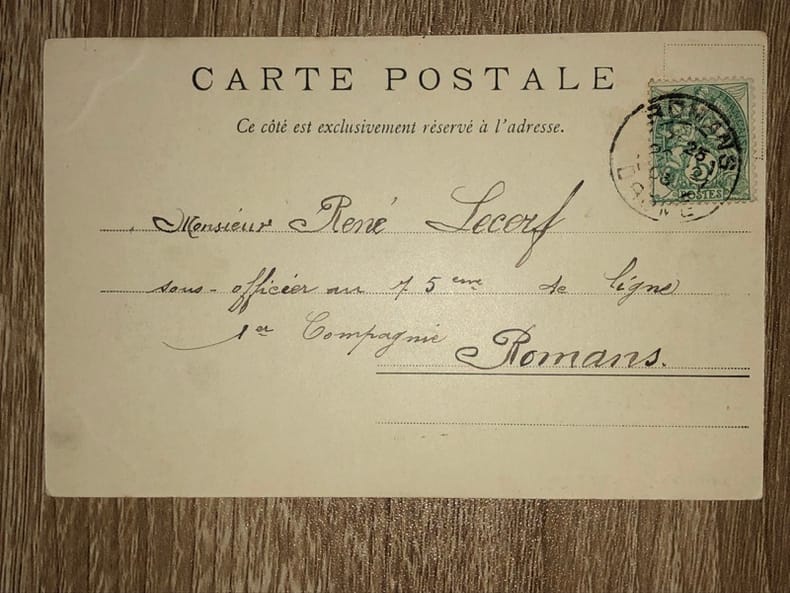 CARTE POSTALE
Ce côté est exclusivement réservé à l'adresse.
ROMANS
25
DROME
POSTES
Monsieur René Lecerf
sous-officier au 75eme de ligne
1er Compagnie Romans.